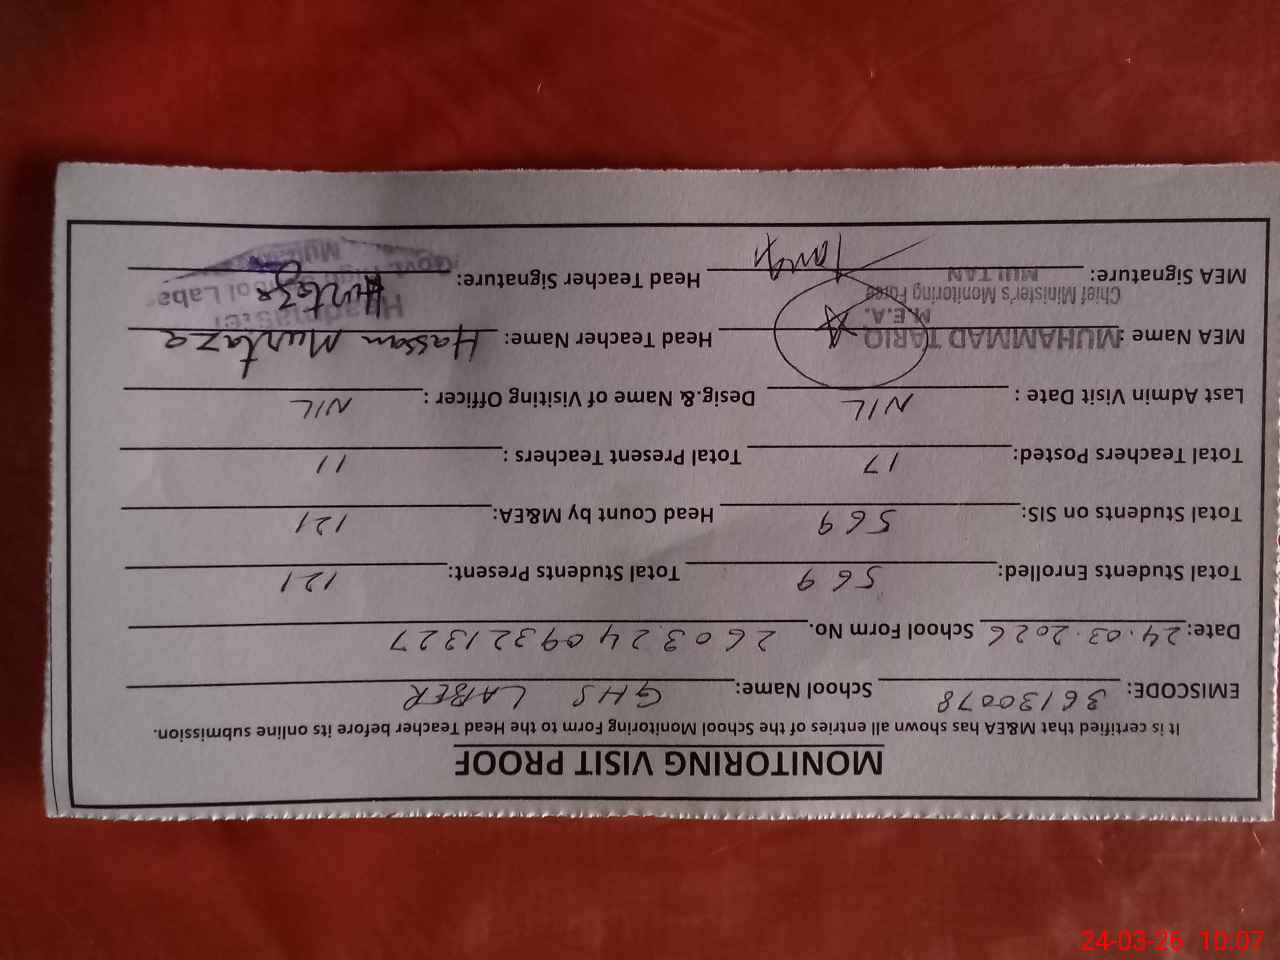 MONITORING VISIT PROOF
It is certified that M&EA has shown all entries of the School Monitoring Form to the Head Teacher before its online submission.
EMISCODE: 36130078 School Name: GHS LABER
Date: 24.03.2026 School Form No. 260324093221327
Total Students Enrolled: 569 Total Students Present: 121
Total Students on SIS: 569 Head Count by M&EA: 121
Total Teachers Posted: 17 Total Present Teachers : 11
Last Admin Visit Date : NIL Desig.& Name of Visiting Officer : NIL
MEA Name : MUHAMMAD TARIQ Head Teacher Name: Hassan Murtaza
M.E.A.
Chief Minister's Monitoring Force
MULTAN
MEA Signature: Head Teacher Signature: Murtaza
Headmaster
Govt. High School Labar
Multan
24-03-26 10:07